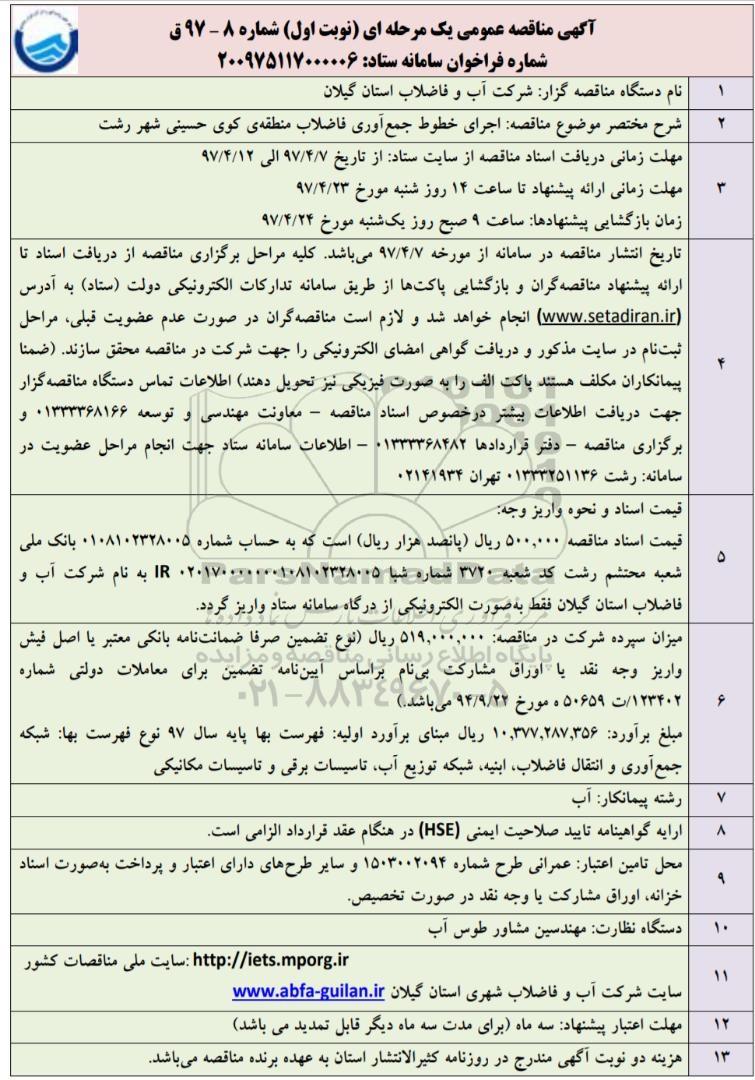 آگهی مناقصه عمومی یک مرحله ای (نوبت اول) شماره ۸ – ۹۷ ق
شماره فراخوان سامانه ستاد: ۲۰۰۹۷۵۱۱۷۰۰۰۰۰۶
۱ نام دستگاه مناقصه گزار: شرکت آب و فاضلاب استان گیلان
۲ شرح مختصر موضوع مناقصه: اجرای خطوط جمع‌آوری فاضلاب منطقه‌ی کوی حسینی شهر رشت
مهلت زمانی دریافت اسناد مناقصه از سایت ستاد: از تاریخ ۹۷/۴/۷ الی ۹۷/۴/۱۲
۳ مهلت زمانی ارائه پیشنهاد تا ساعت ۱۴ روز شنبه مورخ ۹۷/۴/۲۳
زمان بازگشایی پیشنهادها: ساعت ۹ صبح روز یک‌شنبه مورخ ۹۷/۴/۲۴
تاریخ انتشار مناقصه در سامانه از مورخه ۹۷/۴/۷ می‌باشد. کلیه مراحل برگزاری مناقصه از دریافت اسناد تا
ارائه پیشنهاد مناقصه‌گران و بازگشایی پاکت‌ها از طریق سامانه تدارکات الکترونیکی دولت (ستاد) به آدرس
(www.setadiran.ir) انجام خواهد شد و لازم است مناقصه‌گران در صورت عدم عضویت قبلی، مراحل
ثبت‌نام در سایت مذکور و دریافت گواهی امضای الکترونیکی را جهت شرکت در مناقصه محقق سازند. (ضمنا
۴ پیمانکاران مکلف هستند پاکت الف را به صورت فیزیکی نیز تحویل دهند) اطلاعات تماس دستگاه مناقصه‌گزار
جهت دریافت اطلاعات بیشتر درخصوص اسناد مناقصه – معاونت مهندسی و توسعه ۰۱۳۳۳۳۶۸۱۶۶ و
برگزاری مناقصه – دفتر قراردادها ۰۱۳۳۳۳۶۸۴۸۲ – اطلاعات سامانه ستاد جهت انجام مراحل عضویت در
سامانه: رشت ۰۱۳۳۳۲۵۱۱۳۶ تهران ۰۲۱۴۱۹۳۴
قیمت اسناد و نحوه واریز وجه:
قیمت اسناد مناقصه ۵۰۰,۰۰۰ ریال (پانصد هزار ریال) است که به حساب شماره ۰۱۰۸۱۰۲۳۲۸۰۰۵ بانک ملی
۵ شعبه محتشم رشت کد شعبه ۳۷۲۰ شماره شبا IR ۰۲۰۱۷۰۰۰۰۰۰۰۱۰۸۱۰۲۳۲۸۰۰۵ به نام شرکت آب و
فاضلاب استان گیلان فقط به‌صورت الکترونیکی از درگاه سامانه ستاد واریز گردد.
میزان سپرده شرکت در مناقصه: ۵۱۹,۰۰۰,۰۰۰ ریال (نوع تضمین صرفا ضمانت‌نامه بانکی معتبر یا اصل فیش
واریز وجه نقد یا اوراق مشارکت بی‌نام براساس آیین‌نامه تضمین برای معاملات دولتی شماره
۶ ۱۲۳۴۰۲/ت ۵۰۶۵۹ ه مورخ ۹۴/۹/۲۲ می‌باشد.)
مبلغ برآورد: ۱۰,۳۷۷,۲۸۷,۳۵۶ ریال مبنای برآورد اولیه: فهرست بها پایه سال ۹۷ نوع فهرست بها: شبکه
جمع‌آوری و انتقال فاضلاب، ابنیه، شبکه توزیع آب، تاسیسات برقی و تاسیسات مکانیکی
۷ رشته پیمانکار: آب
۸ ارایه گواهینامه تایید صلاحیت ایمنی (HSE) در هنگام عقد قرارداد الزامی است.
۹ محل تامین اعتبار: عمرانی طرح شماره ۱۵۰۳۰۰۲۰۹۴ و سایر طرح‌های دارای اعتبار و پرداخت به‌صورت اسناد
خزانه، اوراق مشارکت یا وجه نقد در صورت تخصیص.
۱۰ دستگاه نظارت: مهندسین مشاور طوس آب
http://iets.mporg.ir :سایت ملی مناقصات کشور
۱۱ سایت شرکت آب و فاضلاب شهری استان گیلان www.abfa-guilan.ir
۱۲ مهلت اعتبار پیشنهاد: سه ماه (برای مدت سه ماه دیگر قابل تمدید می باشد)
۱۳ هزینه دو نوبت آگهی مندرج در روزنامه کثیرالانتشار استان به عهده برنده مناقصه می‌باشد.
ParsNamadData
پایگاه اطلاع رسانی مناقصه و مزایده
۰۲۱-۸۸۳۴۹۶۷۰-۵